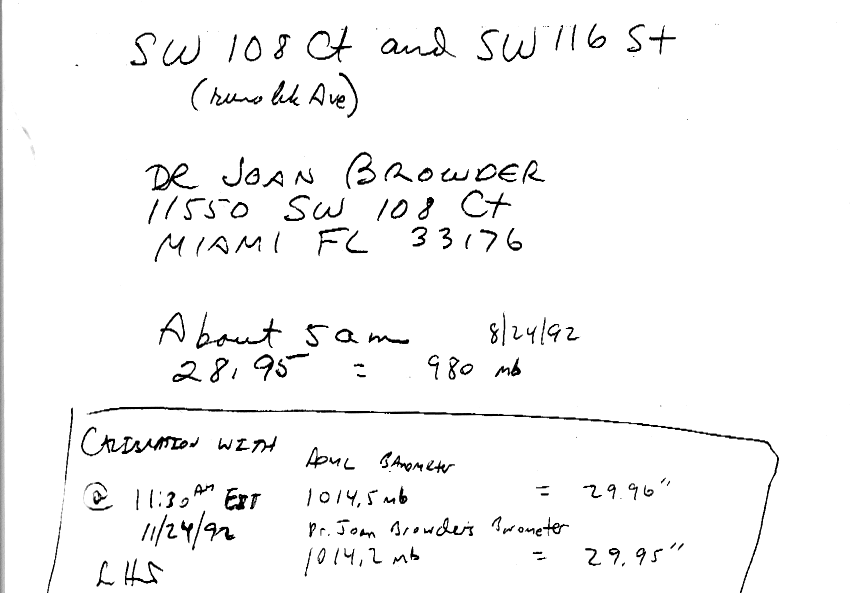 SW 108 Ct and SW 116 St
Ave)
DR JOAN BROWDER
11550 SW 108 Ct
MIAMI FL 33176
About 5 am 8/24/92
28.95 = 980 mb
CALIBRATION WITH
AOML BAROMETER
@ 11:30 AM EST 1014.5 mb = 29.96"
11/24/92 Dr. Joan Browder's Barometer
1014.2 mb = 29.95"
LHS